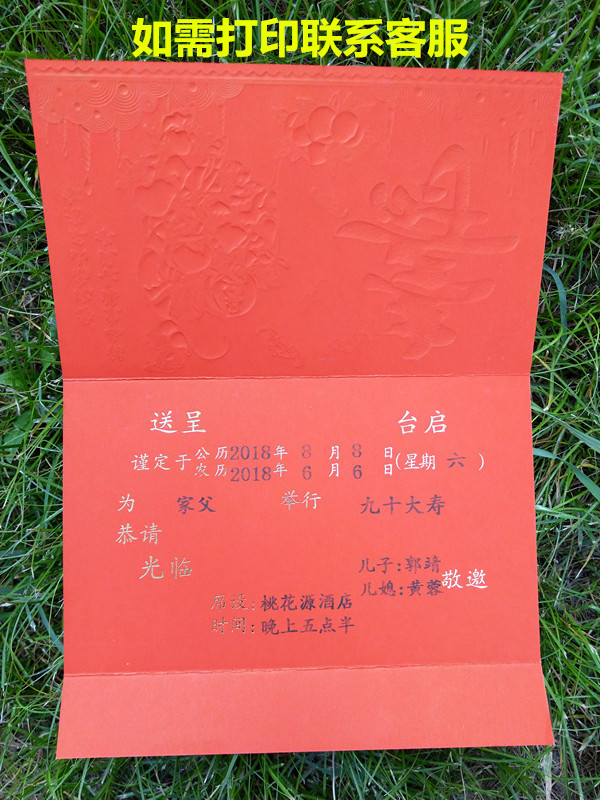 如需打印联系客服
送呈 台启
谨定于公历2018年 8 月 8 日(星期 六 )
农历2018年 6 月 6 日
为 家父 举行 九十大寿
恭请
光临
儿子:郭靖
儿媳:黄蓉 敬邀
席设:桃花源酒店
时间:晚上五点半